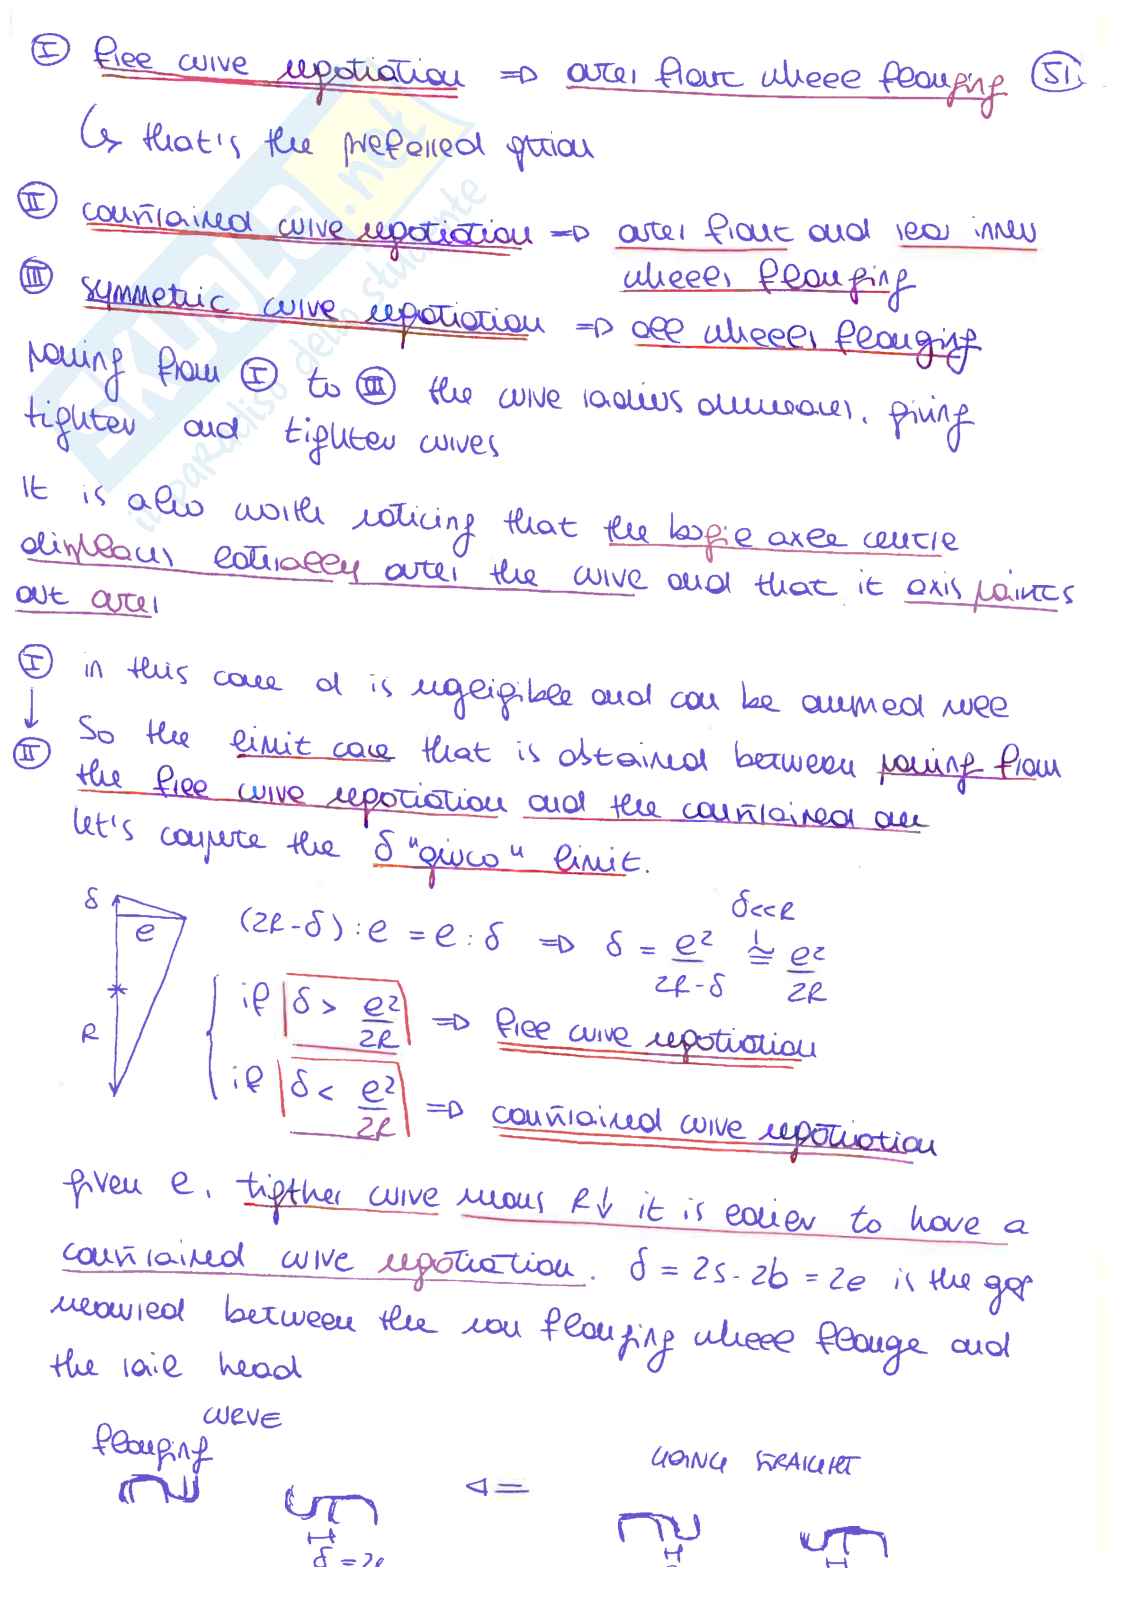 I free curve negotiation ⇒ outer front wheel flanging 51
↳ that's the preferred option
II constrained curve negotiation ⇒ outer front and rear inner
wheels flanging
III symmetric curve negotiation ⇒ all wheels flanging
passing from I to III the curve radius decreases, giving
tighter and tighter curves
It is also worth noticing that the bogie axle centre
displaces laterally outer the curve and that it axis points
out outer
I in this case α is negligible and can be assumed null
↓ So the limit case that is obtained between passing from
II the free curve negotiation and the constrained one
let's compute the δ "giuoco" limit.
δ e R
(2R-δ) : e = e : δ ⇒ δ = e²/(2R-δ) ≅ e²/2R
δ<<R
if δ > e²/2R ⇒ free curve negotiation
if δ < e²/2R ⇒ constrained curve negotiation
given e, tigther curve means R↓ it is easier to have a
constrained curve negotiation. δ = 2s-2b = 2e is the gap
measured between the non flanging wheel flange and
the rail head
CURVE
flanging
GOING STRAIGHT
δ = 2e
SKUOLA.net
il paradiso dello studente